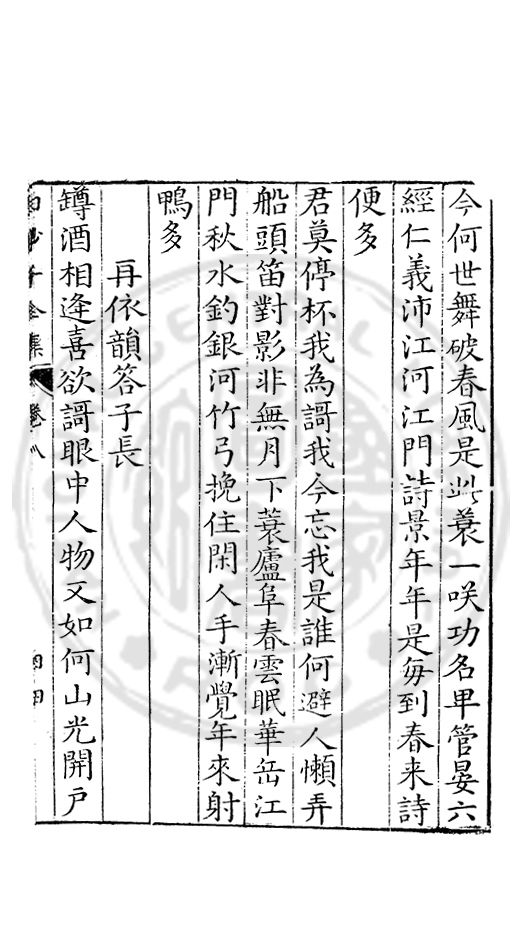 今何世舞破春風是此蓑一咲功名卑管晏六
經仁義沛江河江門詩景年年是每到春来詩
便多
君莫停杯我為謌我今忘我是誰何避人懶弄
船頭笛對影非無月下蓑廬阜春雲眠華岳江
門秋水釣銀河竹弓挽住閑人手漸覺年來射
鴨多
再依韻答子長
罇酒相逢喜欲謌眼中人物又如何山光開戶